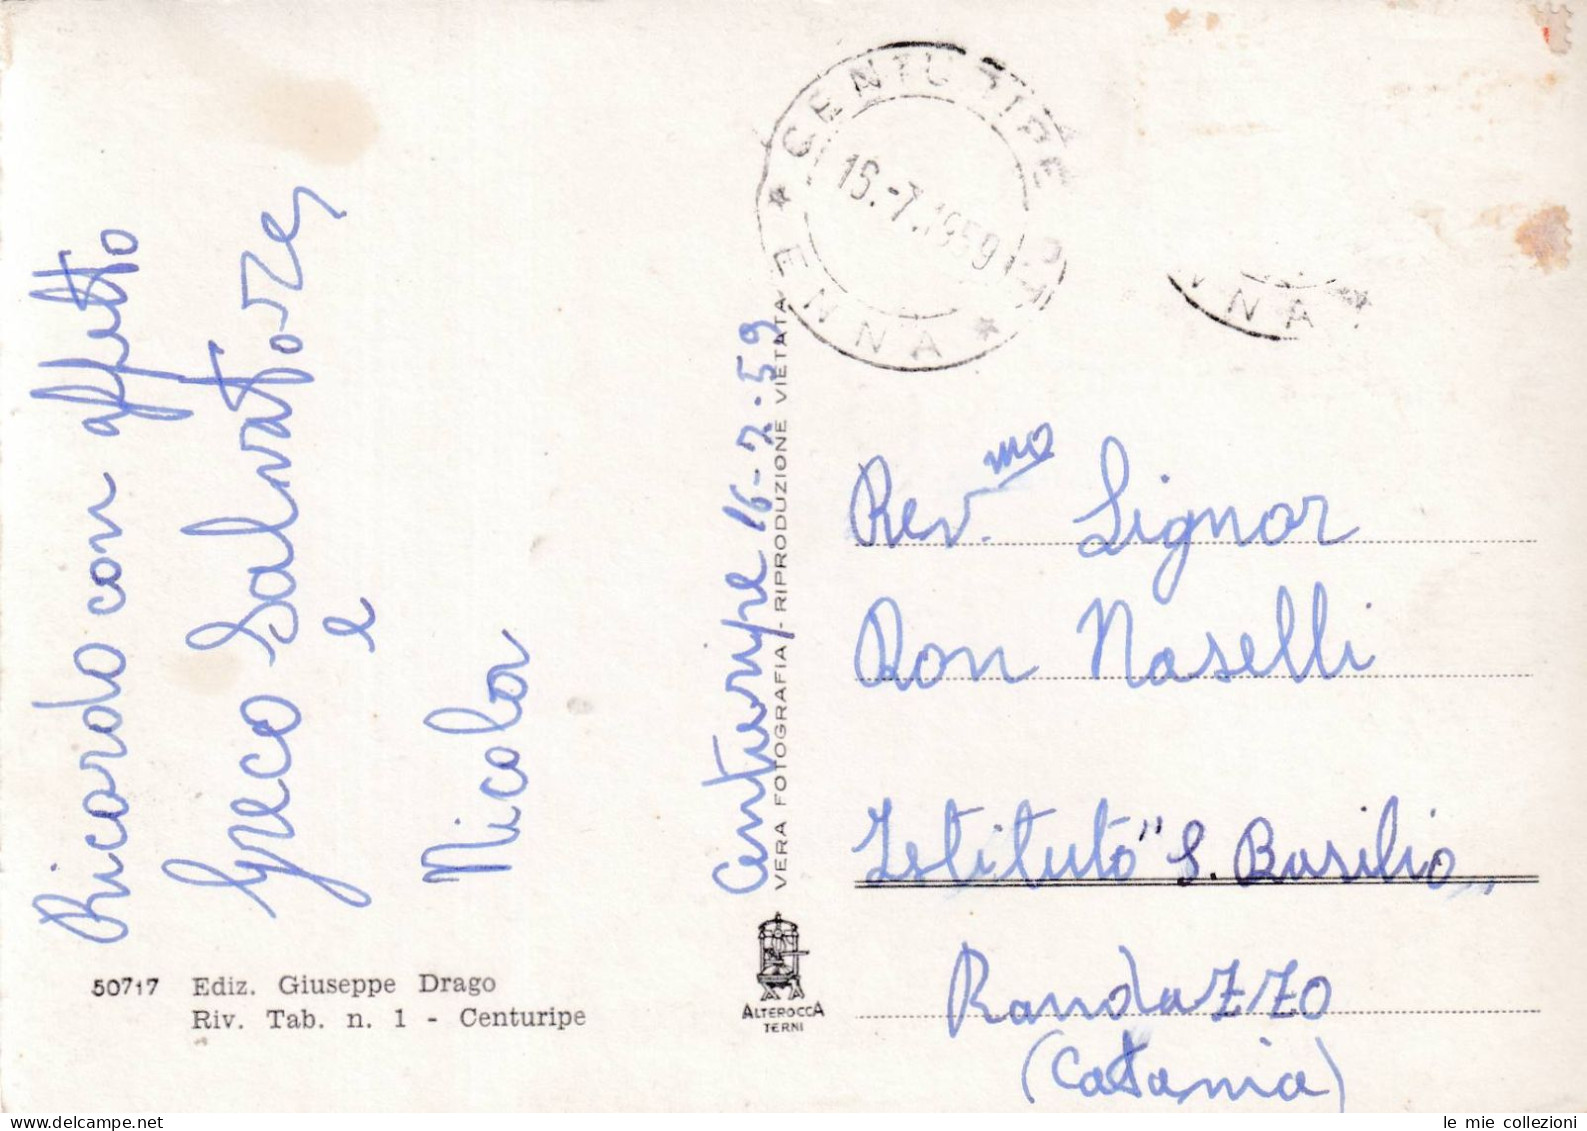 Ricordo con affetto
Greco Salvatore
e
Nicola
50717 Ediz. Giuseppe Drago
Riv. Tab. n. 1 - Centuripe
Centuripe 16-7-59
VERA FOTOGRAFIA - RIPRODUZIONE VIETATA
ALTEROCCA
TERNI
CENTURIPE
16.-7.1959
* ENNA *
NNA
Rev.mo Signor
Don Naselli
Istituto "S. Basilio"
Randazzo
(Catania)
le mie collezioni